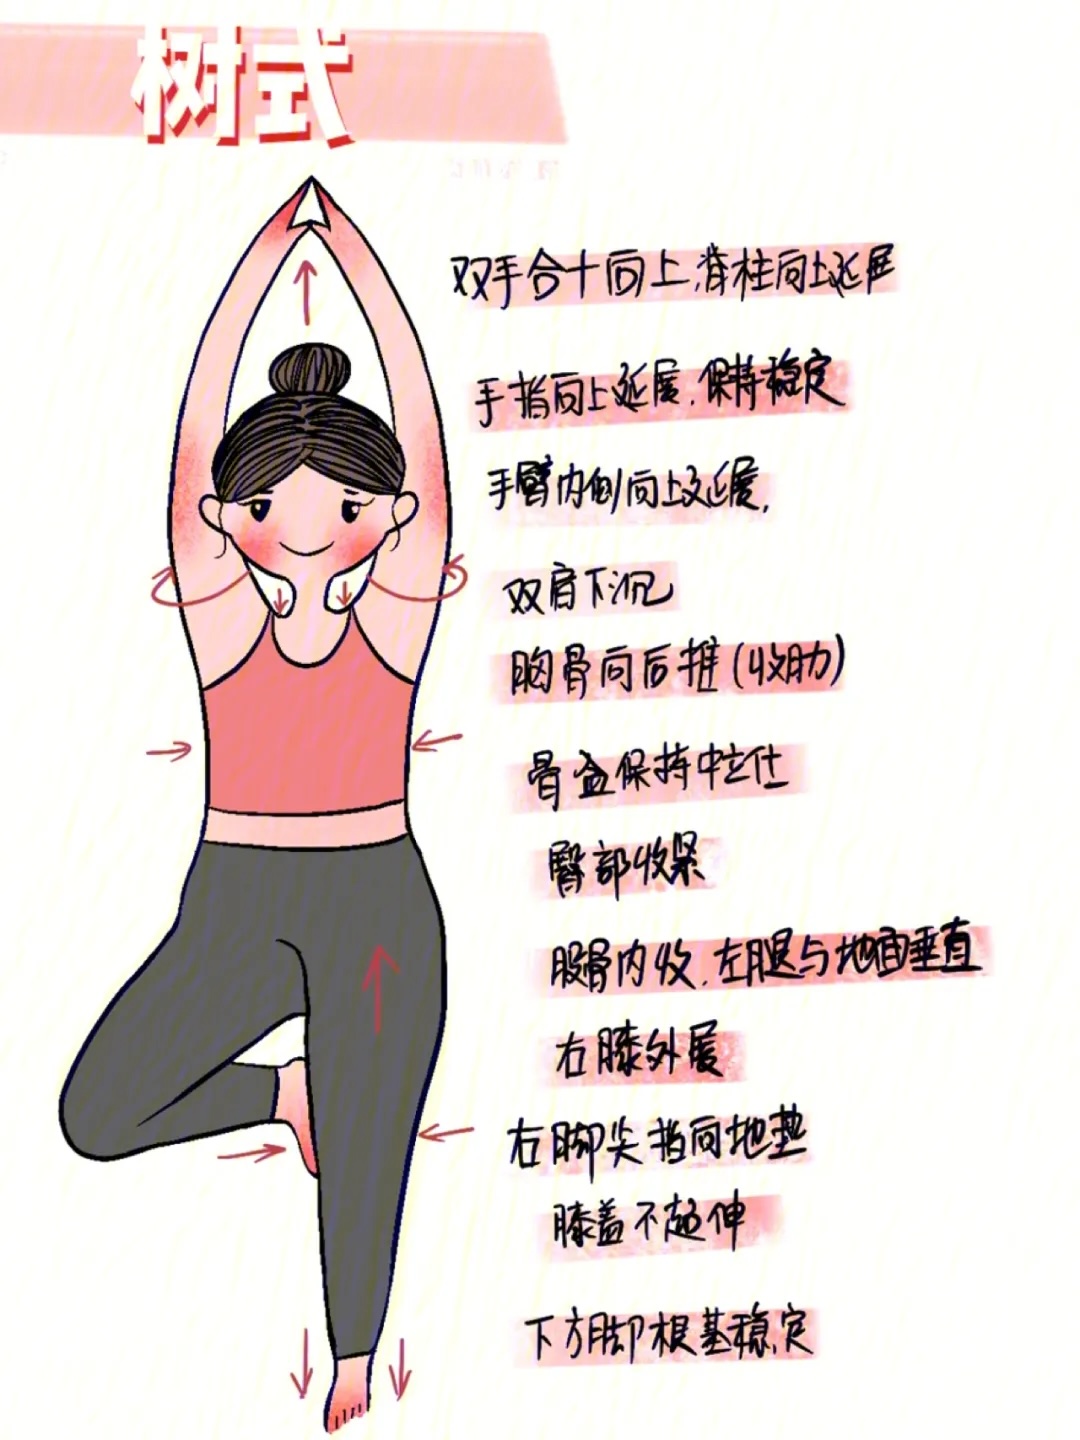 树式
双手合十向上,脊柱向上延展
手指向上延展.保持稳定
手臂内侧向上延展,
双肩下沉
胸骨向后推(收肋)
骨盆保持中立位
臀部收紧
股骨内收.左腿与地面垂直
右膝外展
右脚尖指向地垫
膝盖不超伸
下方脚根基稳定